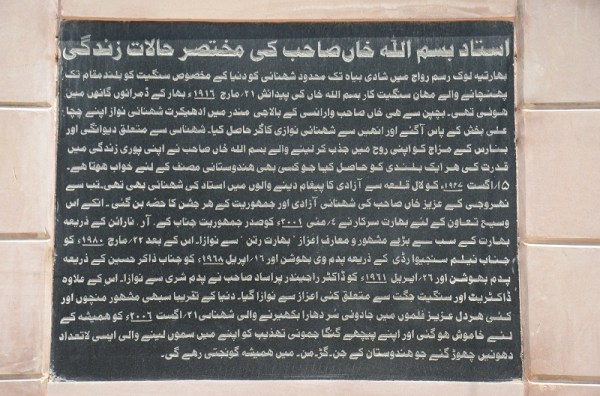 استاد بسم اللہ خاں صاحب کی مختصر حالات زندگی
بھارتیہ لوک رسم رواج میں شادی بیاہ تک محدود شھنائی کو دنیا کے مخصوص سنگیت کو بلند مقام تک
پھنچانے والے مھان سنگیت کار بسم اللہ خاں کی پیدائش ۲۱/ مارچ ۱۹۱۶ء بھار کے ڈمرائوں گائوں میں
ھوئی تھی۔ بچپن سے ھی خاں صاحب وارانسی کے بالاجی مندر میں ادھیکرت شھنائی نواز اپنے چچا
علی بخش کے پاس آگئے اور انھیں سے شھنائی نوازی کاگر حاصل کیا۔ شھناسی سے متعلق دیوانگی اور
بنارس کے مزاج کو اپنی روح میں جذب کر لینے والے بسم اللہ خاں صاحب نے اپنی پوری زندگی میں
قدرت کی ھر ایک بلندی کو حاصل کیا جو کسی بھی ھندوستانی مصنف کے لئے خواب ھوتا ھے۔
۱۵/اگست ۱۹۴۷ء کو لال قلعہ سے آزادی کا پیغام دینے والوں میں استاد کی شھنائی بھی تھی۔ تب سے
نھروجی کے عزیز خاں صاحب کی شھنائی آزادی اور جمھوریت کے ھر جشن کا حصّہ بن گئی ۔ انکے اس
وسیع تعاون کے لئے بھارت سرکار نے ۴/ مئی ۲۰۰۱ء کو صدر جمھوریت جناب کے۔ آر۔ نارائن کے ذریعہ
بھارت کے سب سے بڑے مشھور و معارف اعزاز "بھارت رتن "سے نوازا۔ اس کے بعد ۲۲/ مارچ ۱۹۸۰ء کو
جناب نیلم سنجیواریڈی کے ذریعہ پدم وی بھوشن اور ۱۶/ اپریل ۱۹۶۸ء کو جناب ذاکر حسین کے ذریعہ
پدم بھوشن اور ۲۶/ اپریل ۱۹۶۱ء کو ڈاکٹر راجیندر پراساد صاحب نے پدم شری سے نوازا۔ اس کے علاوہ
ڈاکٹریٹ اور سنگیت جگت سے متعلق کئی اعزاز سے نوازا گیا۔ دنیا کے تقریبا سبھی مشھور منچوں اور
کئی ھردل عزیز فلموں میں جادوئی سُر دھارا بکھیرنے والی شھناسی ۲۱/ اگست ۲۰۰۶ء کو ھمیشہ کے
لئے خاموش ھو گئی اور اپنے پیچھے گنگا جمونی تھذیب کو اپنے میں سموں لینے والی ایسی لاتعداد
دھونیں چھوڑ گئے جو ھندوستان کے جن۔گڑ۔من۔ میں ھمیشہ گونجتی رھے گی۔